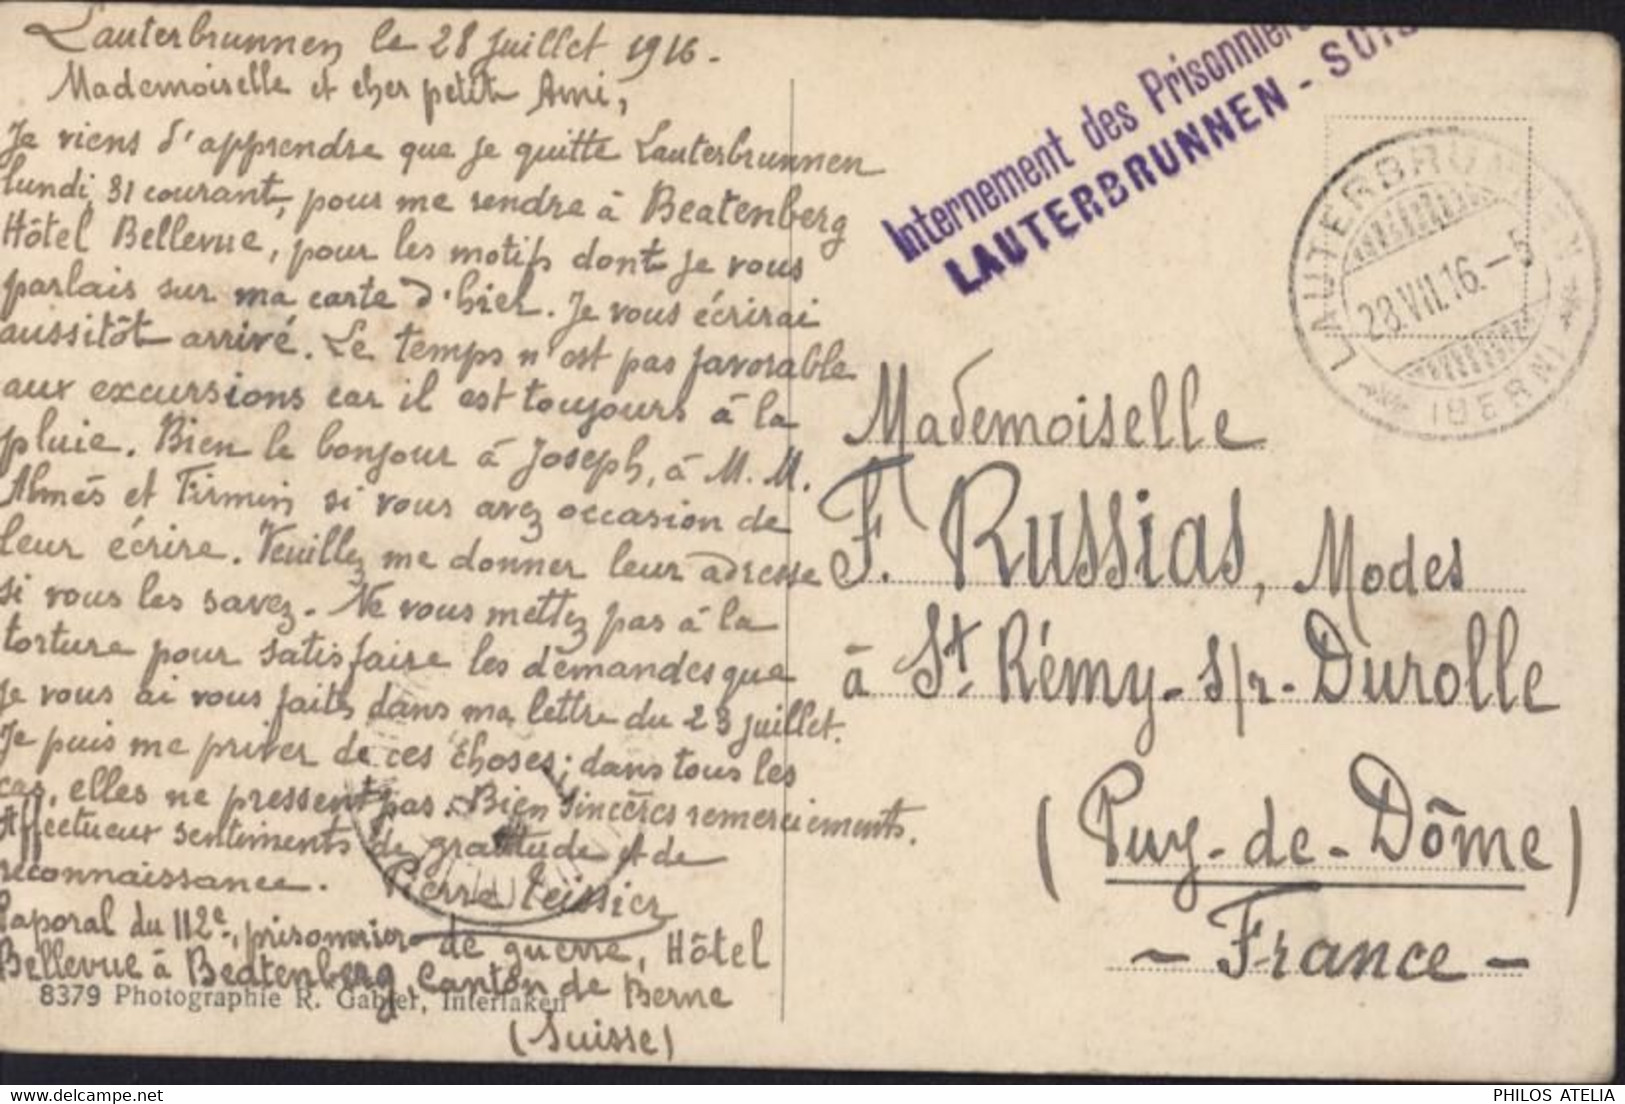 Lauterbrunnen le 28 juillet 1916.
Mademoiselle et cher petit Ami,
Je viens d'apprendre que je quitte Lauterbrunnen
lundi, 31 courant, pour me rendre à Beatenberg
Hôtel Bellevue, pour les motifs dont je vous
parlais sur ma carte d'hier. Je vous écrirai
aussitôt arrivé. Le temps n'est pas favorable
aux excursions car il est toujours à la
pluie. Bien le bonjour à Joseph, à M. M.
Almés et Firmin si vous avez occasion de
leur écrire. Veuillez me donner leur adresse
si vous les savez. Ne vous mettez pas à la
torture pour satisfaire les demandes que
je vous ai vous faites dans ma lettre du 23 juillet.
Je puis me priver de ces choses; dans tous les
cas, elles ne pressent pas. Bien sincères remerciements.
Affectueux sentiments de gratitude et de
reconnaissance. Pierre Teissier
Caporal du 112e, prisonnier de guerre, Hôtel
Bellevue à Beatenberg, Canton de Berne
(Suisse)
8379 Photographie R. Gabler, Interlaken
Internement des Prisonniers
LAUTERBRUNNEN - SUIS
LAUTERBRUNNEN
28.VII.16.-5
(BERN)
Mademoiselle
F. Russias, Modes
à St. Rémy-s/r-Durolle
(Puy-de-Dôme)
- France -
PHILOS ATELIA